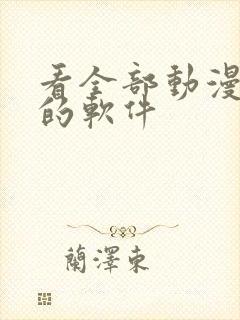 看全部動漫
的軟件
蘭澤東